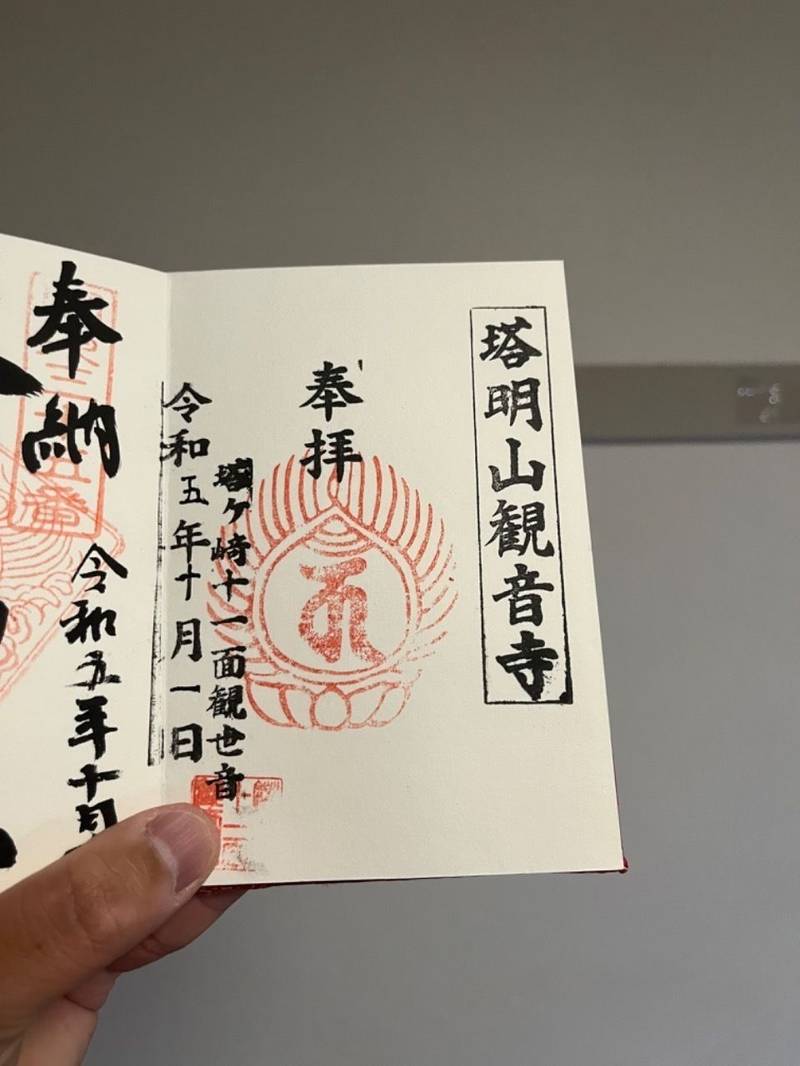 塔明山観音寺
奉拝
塔ヶ崎十一面観世音
令和五年十月一日
奉納
令和五年十月